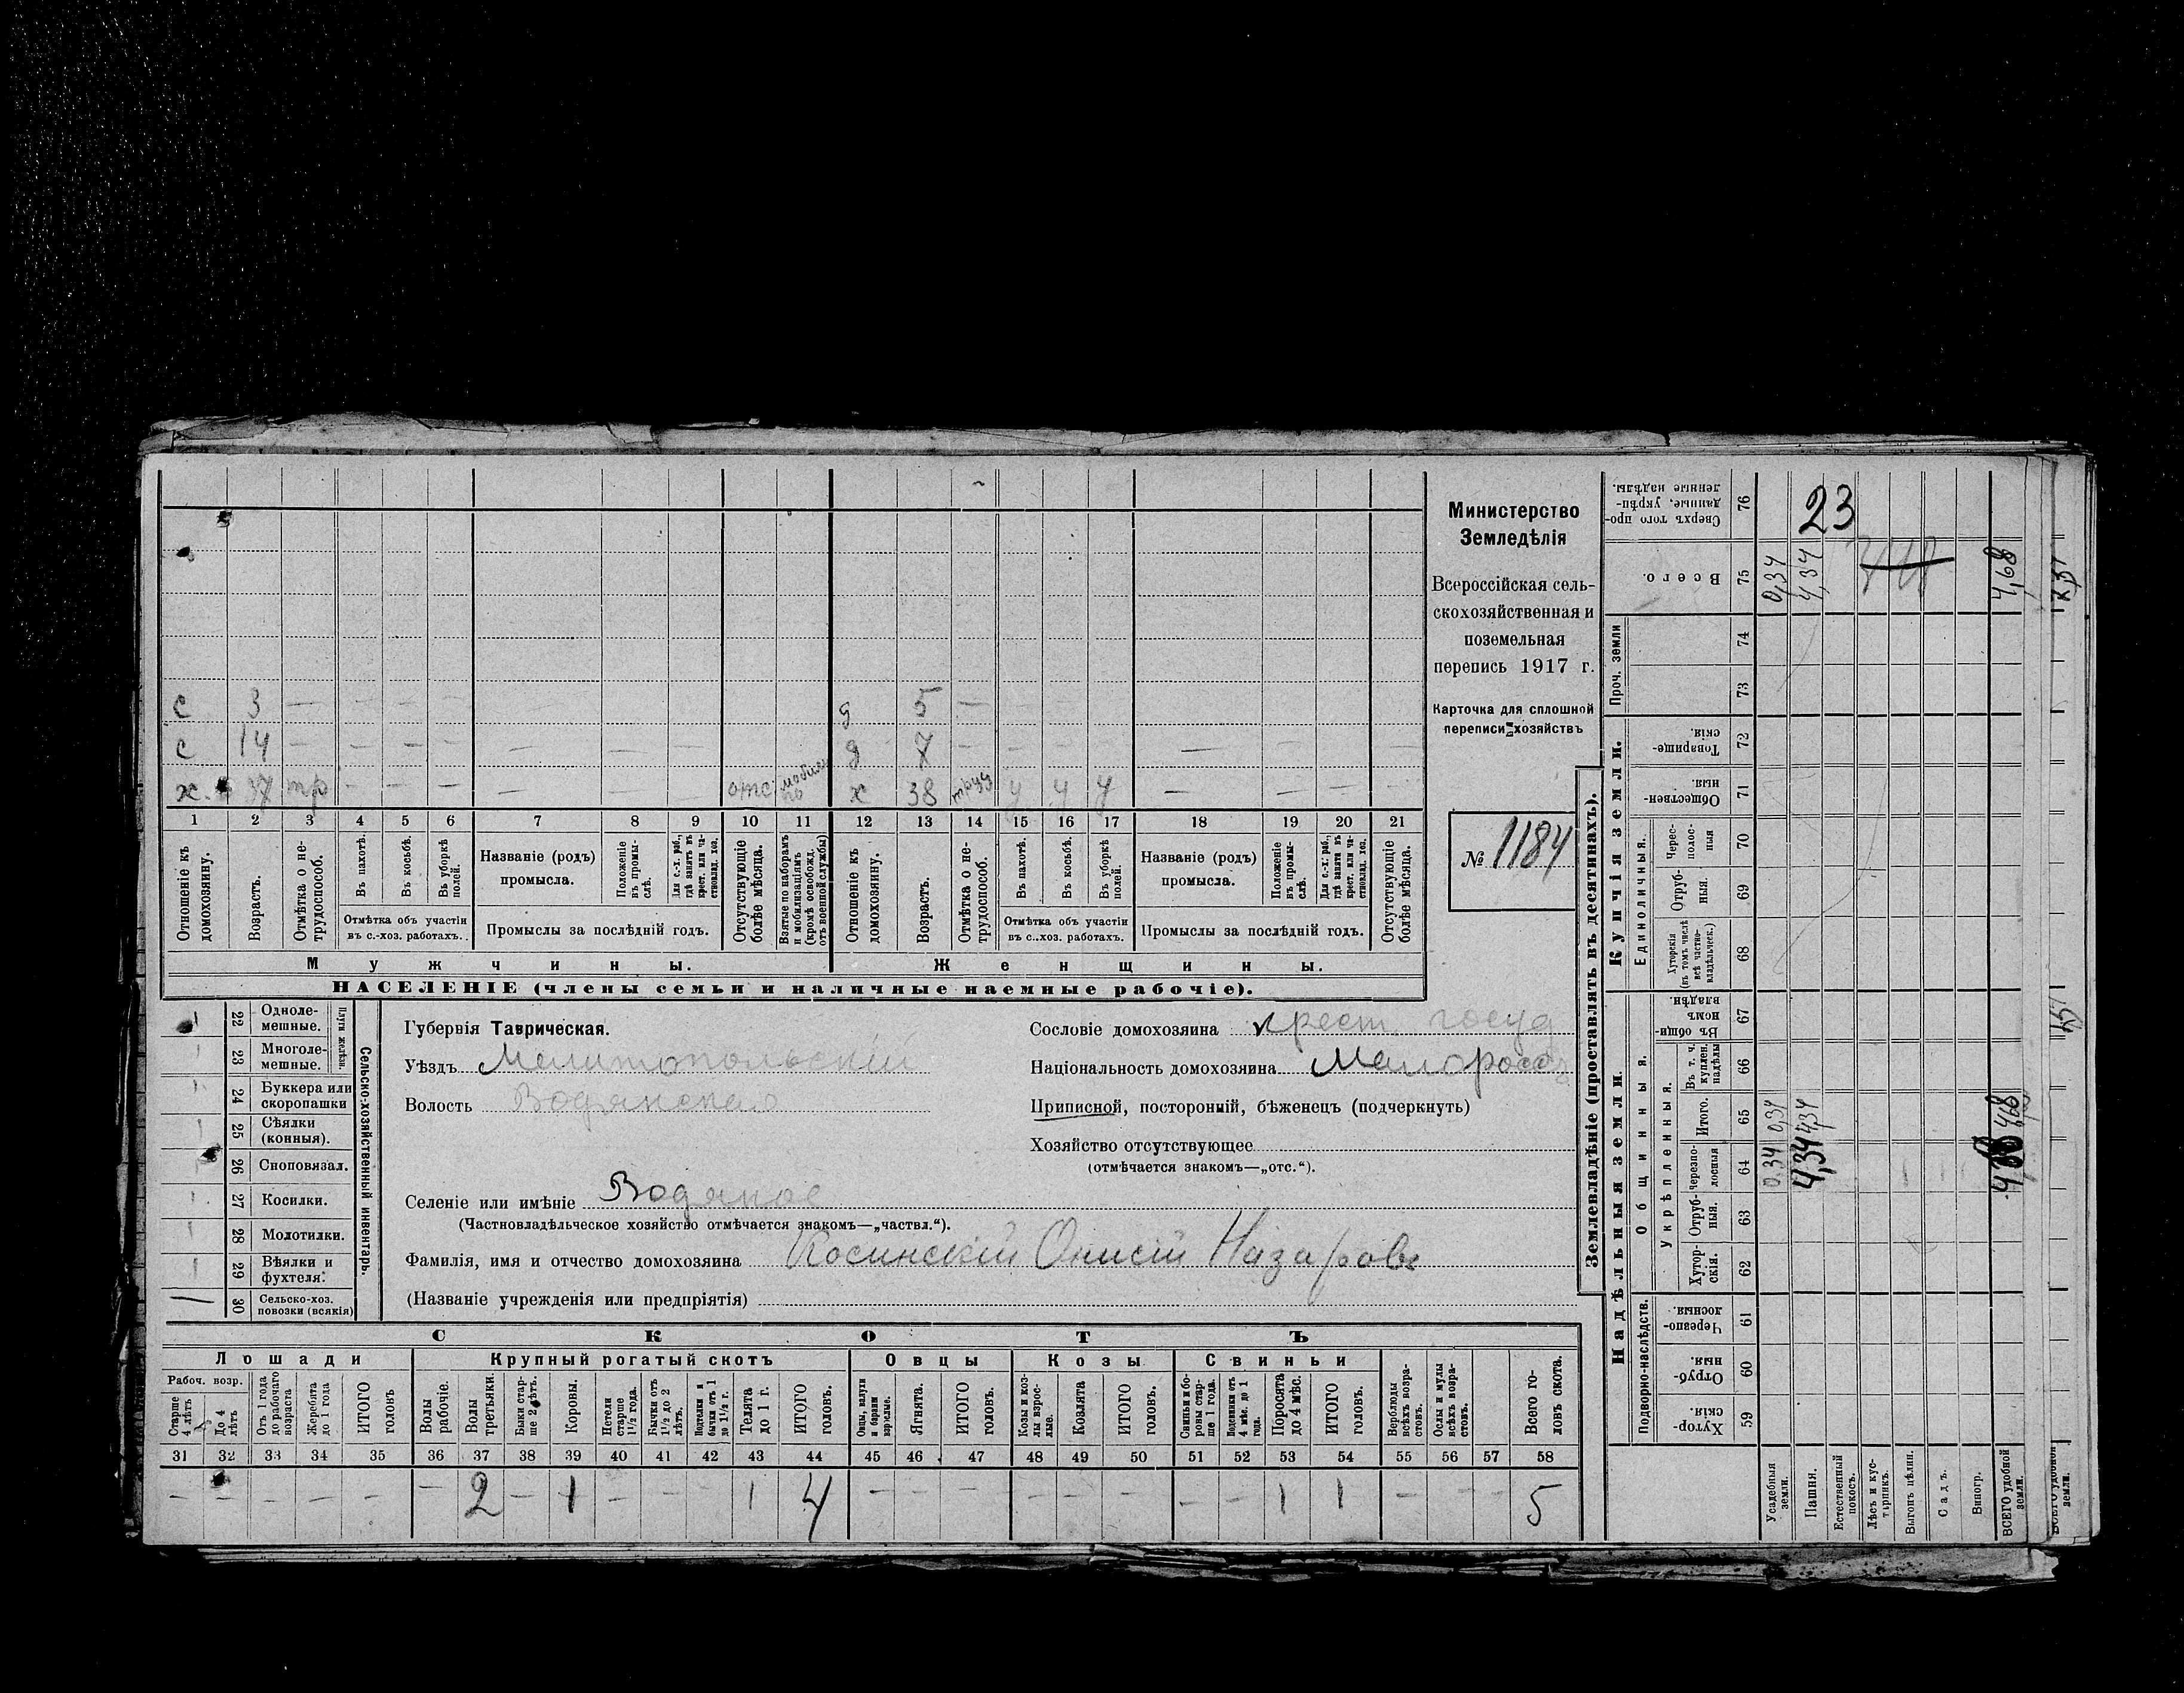 с 3 — — — — д 5 —
с 14 — — — — — — — д 7 — — — — — — — —
х. 37 тр — — — — — — отс. мобил. х 38 труд у у у — — — —
1 2 3 4 5 6 7 8 9 10 11 12 13 14 15 16 17 18 19 20 21
Отношеніе къ домохозяину.
Возрастъ.
Отмѣтка о не-трудоспособ.
Въ пахотѣ.
Въ косьбѣ.
Въ уборкѣ полей.
Отмѣтка объ участіи въ с.-хоз. работахъ.
Названіе (родъ) промысла.
Положеніе въ промы-слѣ.
Для с.-х. раб., гдѣ занятъ въ крест. или ча-стновлад. хоз.
Промыслы за послѣдній годъ.
Отсутствующіе болѣе мѣсяца.
Взятые по наборамъ и мобилизаціямъ (кромѣ освобожд. отъ военной службы)
Отношеніе къ домохозяину.
Возрастъ.
Отмѣтка о не-трудоспособ.
Въ пахотѣ.
Въ косьбѣ.
Въ уборкѣ полей.
Отмѣтка объ участіи въ с.-хоз. работахъ.
Названіе (родъ) промысла.
Положеніе въ промы-слѣ.
Для с.-х. раб., гдѣ занята въ крест. или ча-стновлад. хоз.
Промыслы за послѣдній годъ.
Отсутствующіе болѣе мѣсяца.
Мужчины. Женщины.
НАСЕЛЕНІЕ (члены семьи и наличные наемные рабочіе).
Министерство
Земледѣлія
Всероссійская сель-
скохозяйственная и
поземельная
перепись 1917 г.
Карточка для сплошной
переписи хозяйствъ
№ 1184
22 Одноле-мешные.
23 Многоле-мешные.
Плуги желѣзн.
24 Буккера или скоропашки
25 Сѣялки (конныя).
26 Сноповязал.
27 Косилки.
28 Молотилки.
29 Вѣялки и фухтеля.
30 Сельско-хоз. повозки (всякія)
Сельско-хозяйственный инвентарь.
Губернія Таврическая.
Уѣздъ Мелитопольскій
Волость Водянская
Селеніе или имѣніе Водяное
(Частновладѣльческое хозяйство отмѣчается знакомъ—„частвл.“).
Фамилія, имя и отчество домохозяина Косинскій Онисій Назаровъ
(Названіе учрежденія или предпріятія)
Сословіе домохозяина крест. госуд
Національность домохозяина Малороссъ
Приписной, посторонній, бѣженецъ (подчеркнуть)
Хозяйство отсутствующее
(отмѣчается знакомъ—„отс.“).
СКОТЪ
Лошади Крупный рогатый скотъ Овцы Козы Свиньи
Рабоч. возр.
Старше 4 лѣтъ
До 4 лѣтъ
Отъ 1 года до рабочаго возраста
Жеребята до 1 года
ИТОГО головъ
Волы рабочіе.
Волы третьяки.
Быки стар-ше 2 лѣтъ.
Коровы.
Нетели старше 1 1/2 года.
Бычки отъ 1 1/2 до 2 лѣтъ.
Подтелки и бычки отъ 1 до 1 1/2 г.
Телята до 1 г.
ИТОГО головъ.
Овцы, валухи и бараны взрослые.
Ягнята.
ИТОГО головъ.
Козы и коз-лы взрос-лые.
Козлята
ИТОГО головъ.
Свиньи и бо-ровы стар-ше 1 года.
Подсвинки отъ 4 мѣс. до 1 года.
Поросята до 4 мѣс.
ИТОГО головъ.
Верблюды всѣхъ возра-стовъ.
Ослы и мулы всѣхъ возра-стовъ.
Всего го-ловъ скота.
31 32 33 34 35 36 37 38 39 40 41 42 43 44 45 46 47 48 49 50 51 52 53 54 55 56 57 58
— — — — — — 2 — 1 — — — 1 4 — — — — — — — — 1 1 — — 5
Землевладѣніе (проставлять въ десятинахъ).
Надѣльныя земли. Купчія земли. Проч. земли
Подворно-наслѣдств. Общинныя. Единоличныя.
Укрѣпленныя.
Хутор-скія. 59
Отруб-ныя. 60
Черезпо-лосныя. 61
Хутор-скія. 62
Отруб-ныя. 63
Черезпо-лосныя 64
Итого. 65
Въ т. ч. куплен. надѣлы 66
Въ общин-номъ владѣн. 67
Хуторскія (въ томъ числѣ всѣ частно-владѣльческ.) 68
Отруб-ныя. 69
Черес-полос-ныя 70
Обществен-ныя. 71
Товарище-скія. 72
73
74
Всего. 75
Сверхъ того про-данные, укрѣп-ленные надѣлы. 76
Усадебныя земли. 0,34 0,34 0,34
Пашня. 4,34 4,34 4,34 23
Естественный покосъ.
Лѣсъ и кус-тарникъ.
Выгонъ цѣлин.
Садъ.
Виногр.
ВСЕГО удобной земли. 4,68 4,68 4,68
ВСЕГО удобной земли.